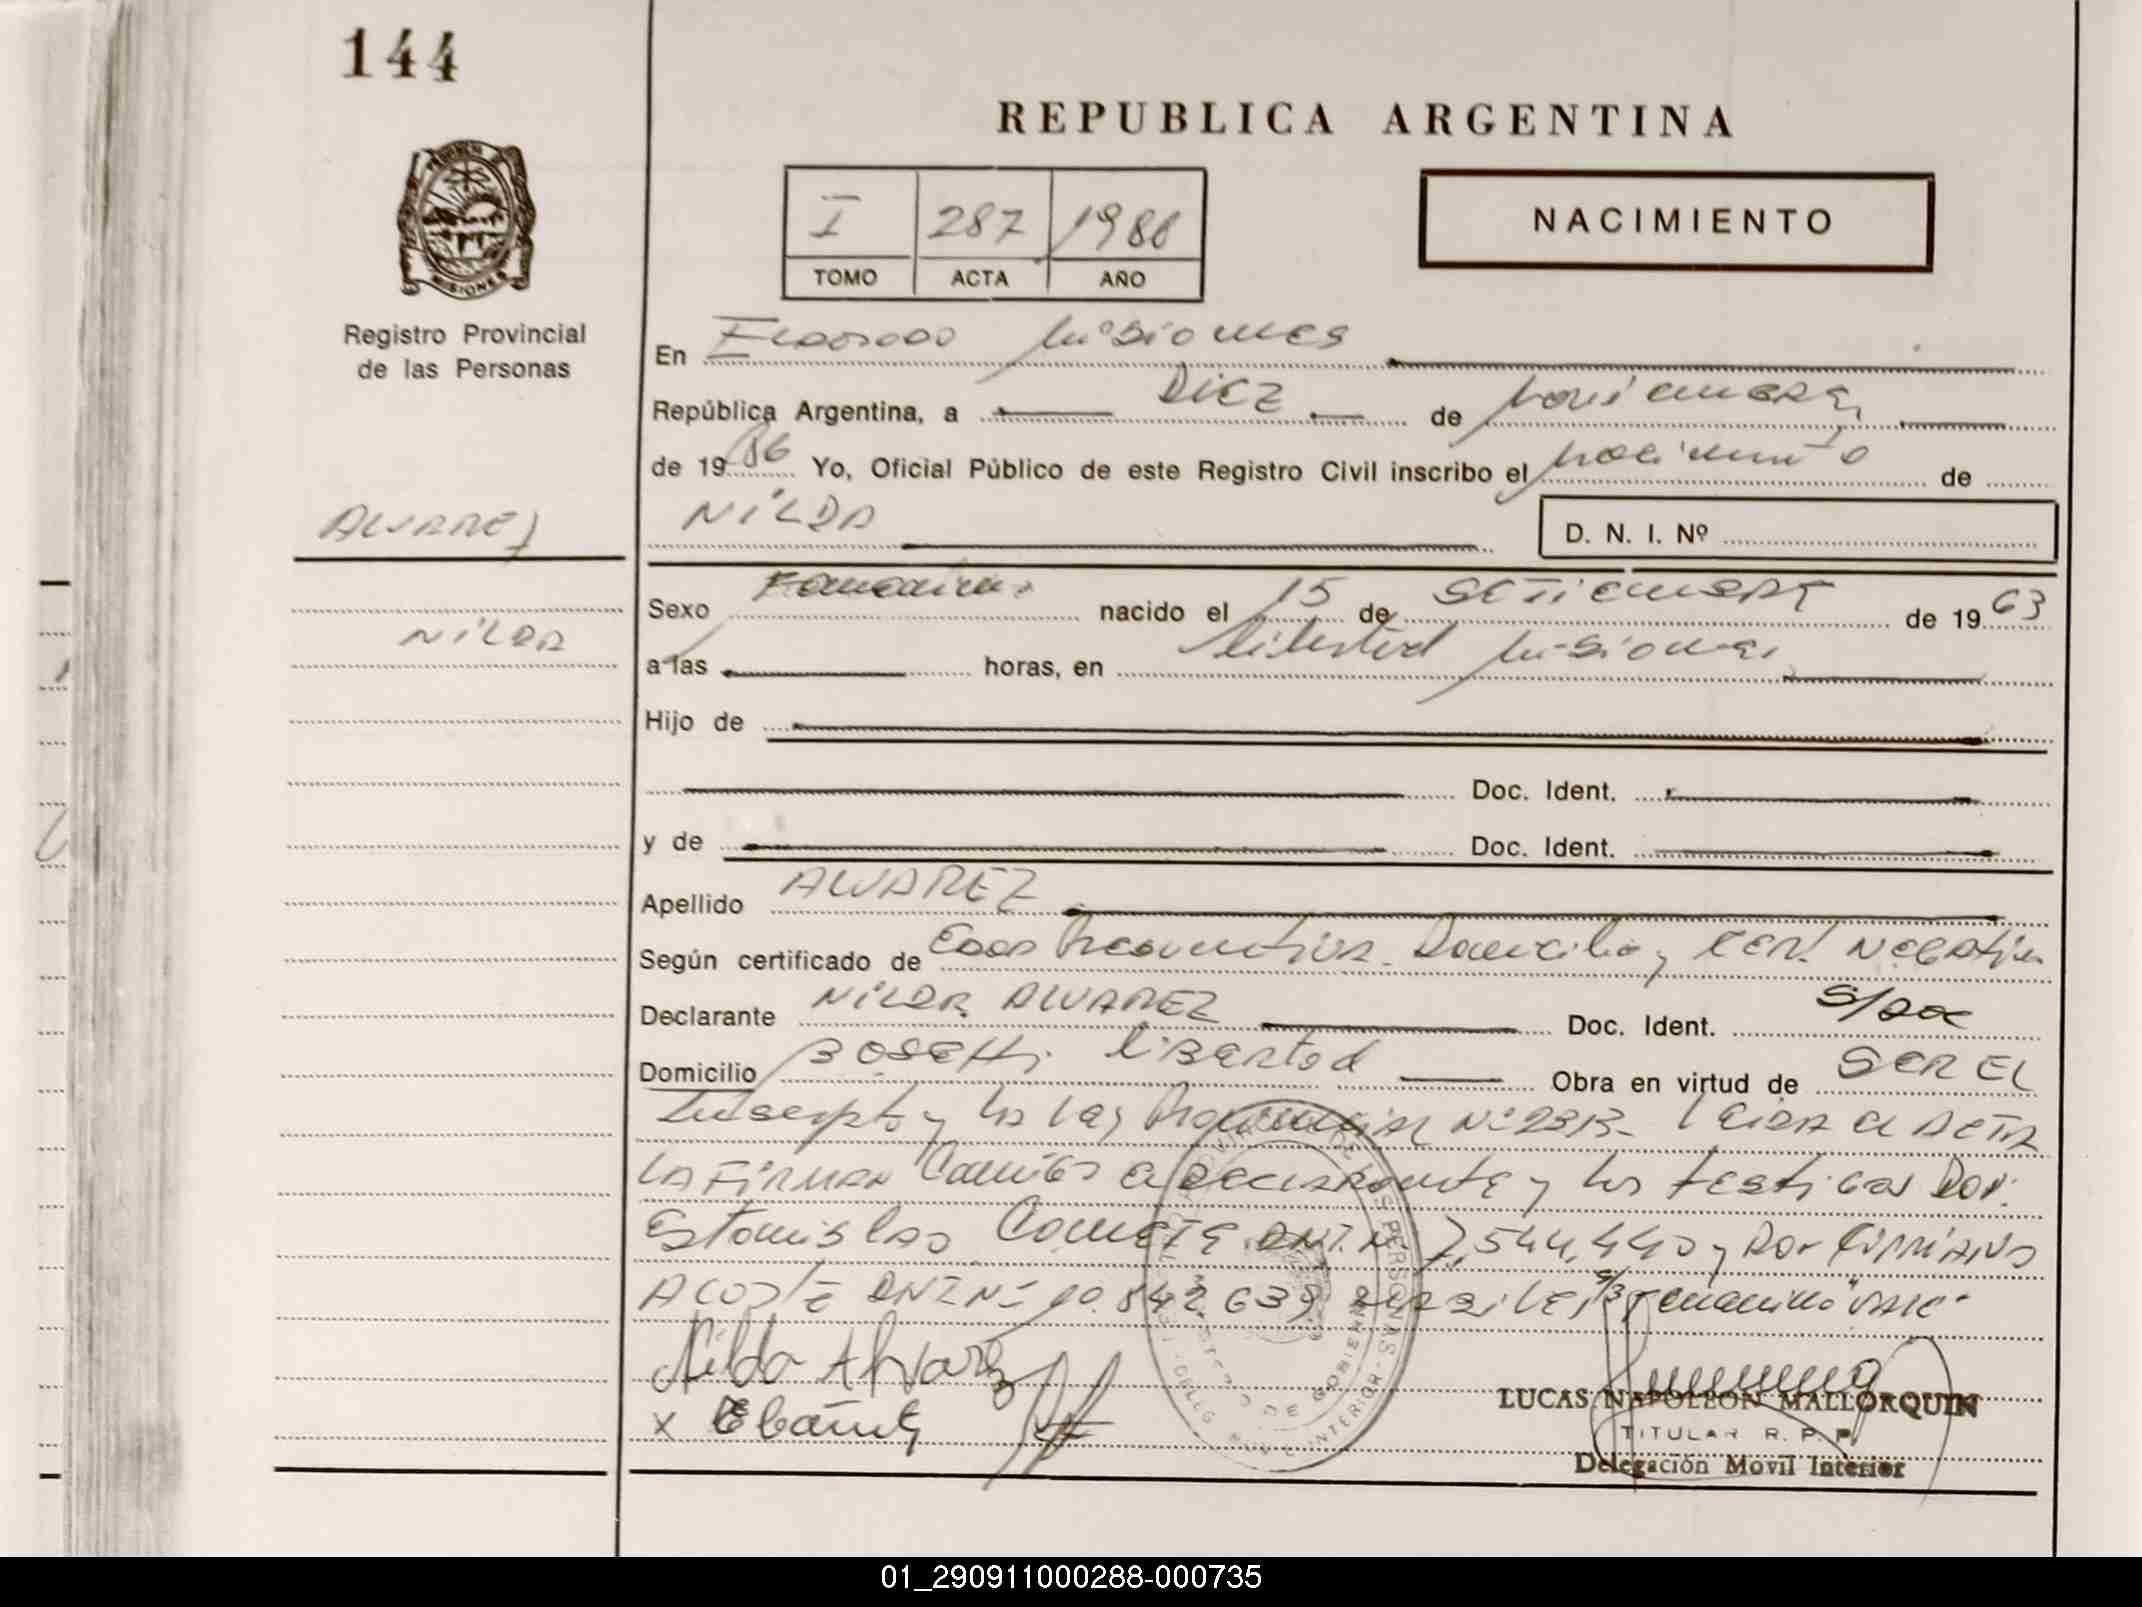 144
REPUBLICA ARGENTINA
I 287 1986
TOMO ACTA AÑO
NACIMIENTO
MISIONES
Registro Provincial
de las Personas
En Eldorado Misiones
República Argentina, a Diez de Noviembre
de 1986 Yo, Oficial Público de este Registro Civil inscribo el nacimiento de
ALVAREZ
NILDA
D. N. I. Nº
Sexo Femenino nacido el 15 de SETIEMBRE de 1963
NILDA
a las horas, en Libertad Misiones
Hijo de
Doc. Ident.
y de Doc. Ident.
Apellido ALVAREZ
Según certificado de Edad Presuntiva Domicilio y CERT. NEGATIVO
Declarante NILDA ALVAREZ Doc. Ident. S/Doc
Domicilio BOSETTI LIBERTAD Obra en virtud de SER EL
Inscripto y Provincial Nº LEIDA EL ACTA
LA FIRMAN Conmigo el DECLARANTE y los testigos Don:
Estanislao DNI. Nº 7.544.440 y Don CIPRIANO
ACOSTE DNI Nº 10.842.639 "Femenino" VALE
Nilda Alvarez
LUCAS NAPOLEON MALLORQUIN
TITULAR R. P. P.
Delegación Movil Interior
01_290911000288-000735